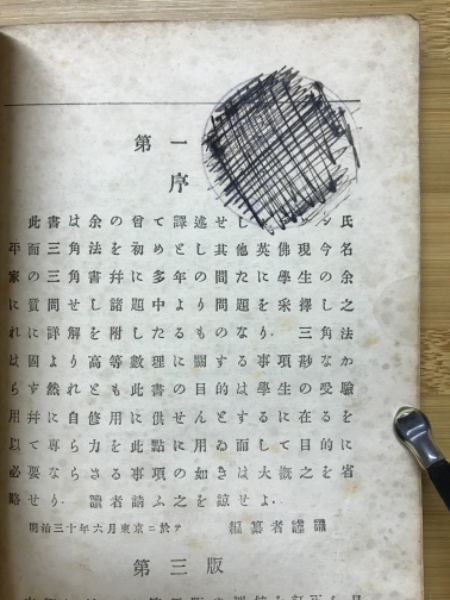 第一
序
此書は余の曾て譯述せし ン氏
平面三角法を初めとし其他英佛現今名
家の三角書幷に多年の間た學生の余
に質問せし諸題中より問題を采擇し之
れに詳解を附したるものなり. 三角法
は固より高等數理に關する事項尠なか
らす然れとも此書の目的は學生の受驗
用幷に自修用に供せんとするに在るを
以て専ら力を此點に用ゐ而して目的に
必要ならさる事項の如きは大槪之を省
略せり. 讀者請ふ之を諒せよ.
明治三十年六月東京ニ於テ 編纂者謹識
第三版